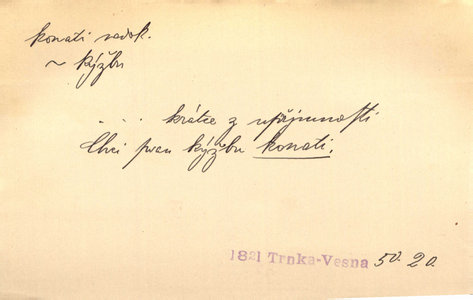 konati nedok.
~ kýžbu
.... krátce z upřjmnosti
Chci svau kýžbu konati.
1821 Trnka-Vesna 50. 20.